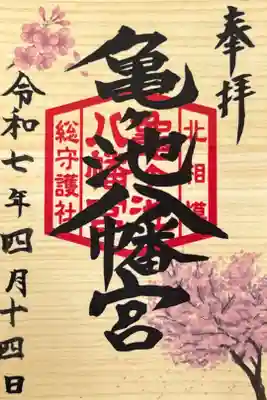 奉拝
北相模
亀ヶ池
八幡宮
総守護社
亀ヶ池八幡宮
令和七年四月十四日